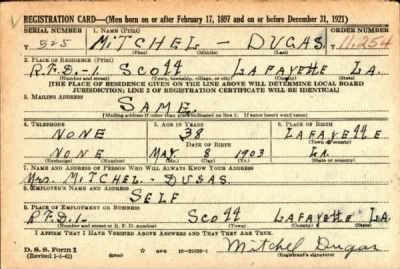 REGISTRATION CARD—(Men born on or after February 17, 1897 and on or before December 31, 1921)
SERIAL NUMBER 1. NAME (Print) ORDER NUMBER
525 MITCHEL — DUGAS 11,254
(First) (Middle) (Last)
2. PLACE OF RESIDENCE (Print)
R.F.D.1- SCOTT LAFAYETTE LA.
(Number and street) (Town, township, village, or city) (County) (State)
[THE PLACE OF RESIDENCE GIVEN ON THE LINE ABOVE WILL DETERMINE LOCAL BOARD
JURISDICTION; LINE 2 OF REGISTRATION CERTIFICATE WILL BE IDENTICAL]
3. MAILING ADDRESS
SAME.
[Mailing address if other than place indicated on line 2. If same insert word same]
4. TELEPHONE 5. AGE IN YEARS 6. PLACE OF BIRTH
NONE 38 LAFAYETTE
DATE OF BIRTH (Town or county)
NONE MAY 8 1903 LA.
(Exchange) (Number) (Mo.) (Day) (Yr.) (State or country)
7. NAME AND ADDRESS OF PERSON WHO WILL ALWAYS KNOW YOUR ADDRESS
MRS. MITCHEL. DUGAS.
8. EMPLOYER'S NAME AND ADDRESS
SELF
9. PLACE OF EMPLOYMENT OR BUSINESS
R.F.D.1- SCOTT LAFAYETTE LA.
(Number and street or R. F. D. number) (Town) (County) (State)
I AFFIRM THAT I HAVE VERIFIED ABOVE ANSWERS AND THAT THEY ARE TRUE.
D. S. S. Form 1 Mitchel Dugas
(Revised 1-1-42) (over) (Registrant's signature)